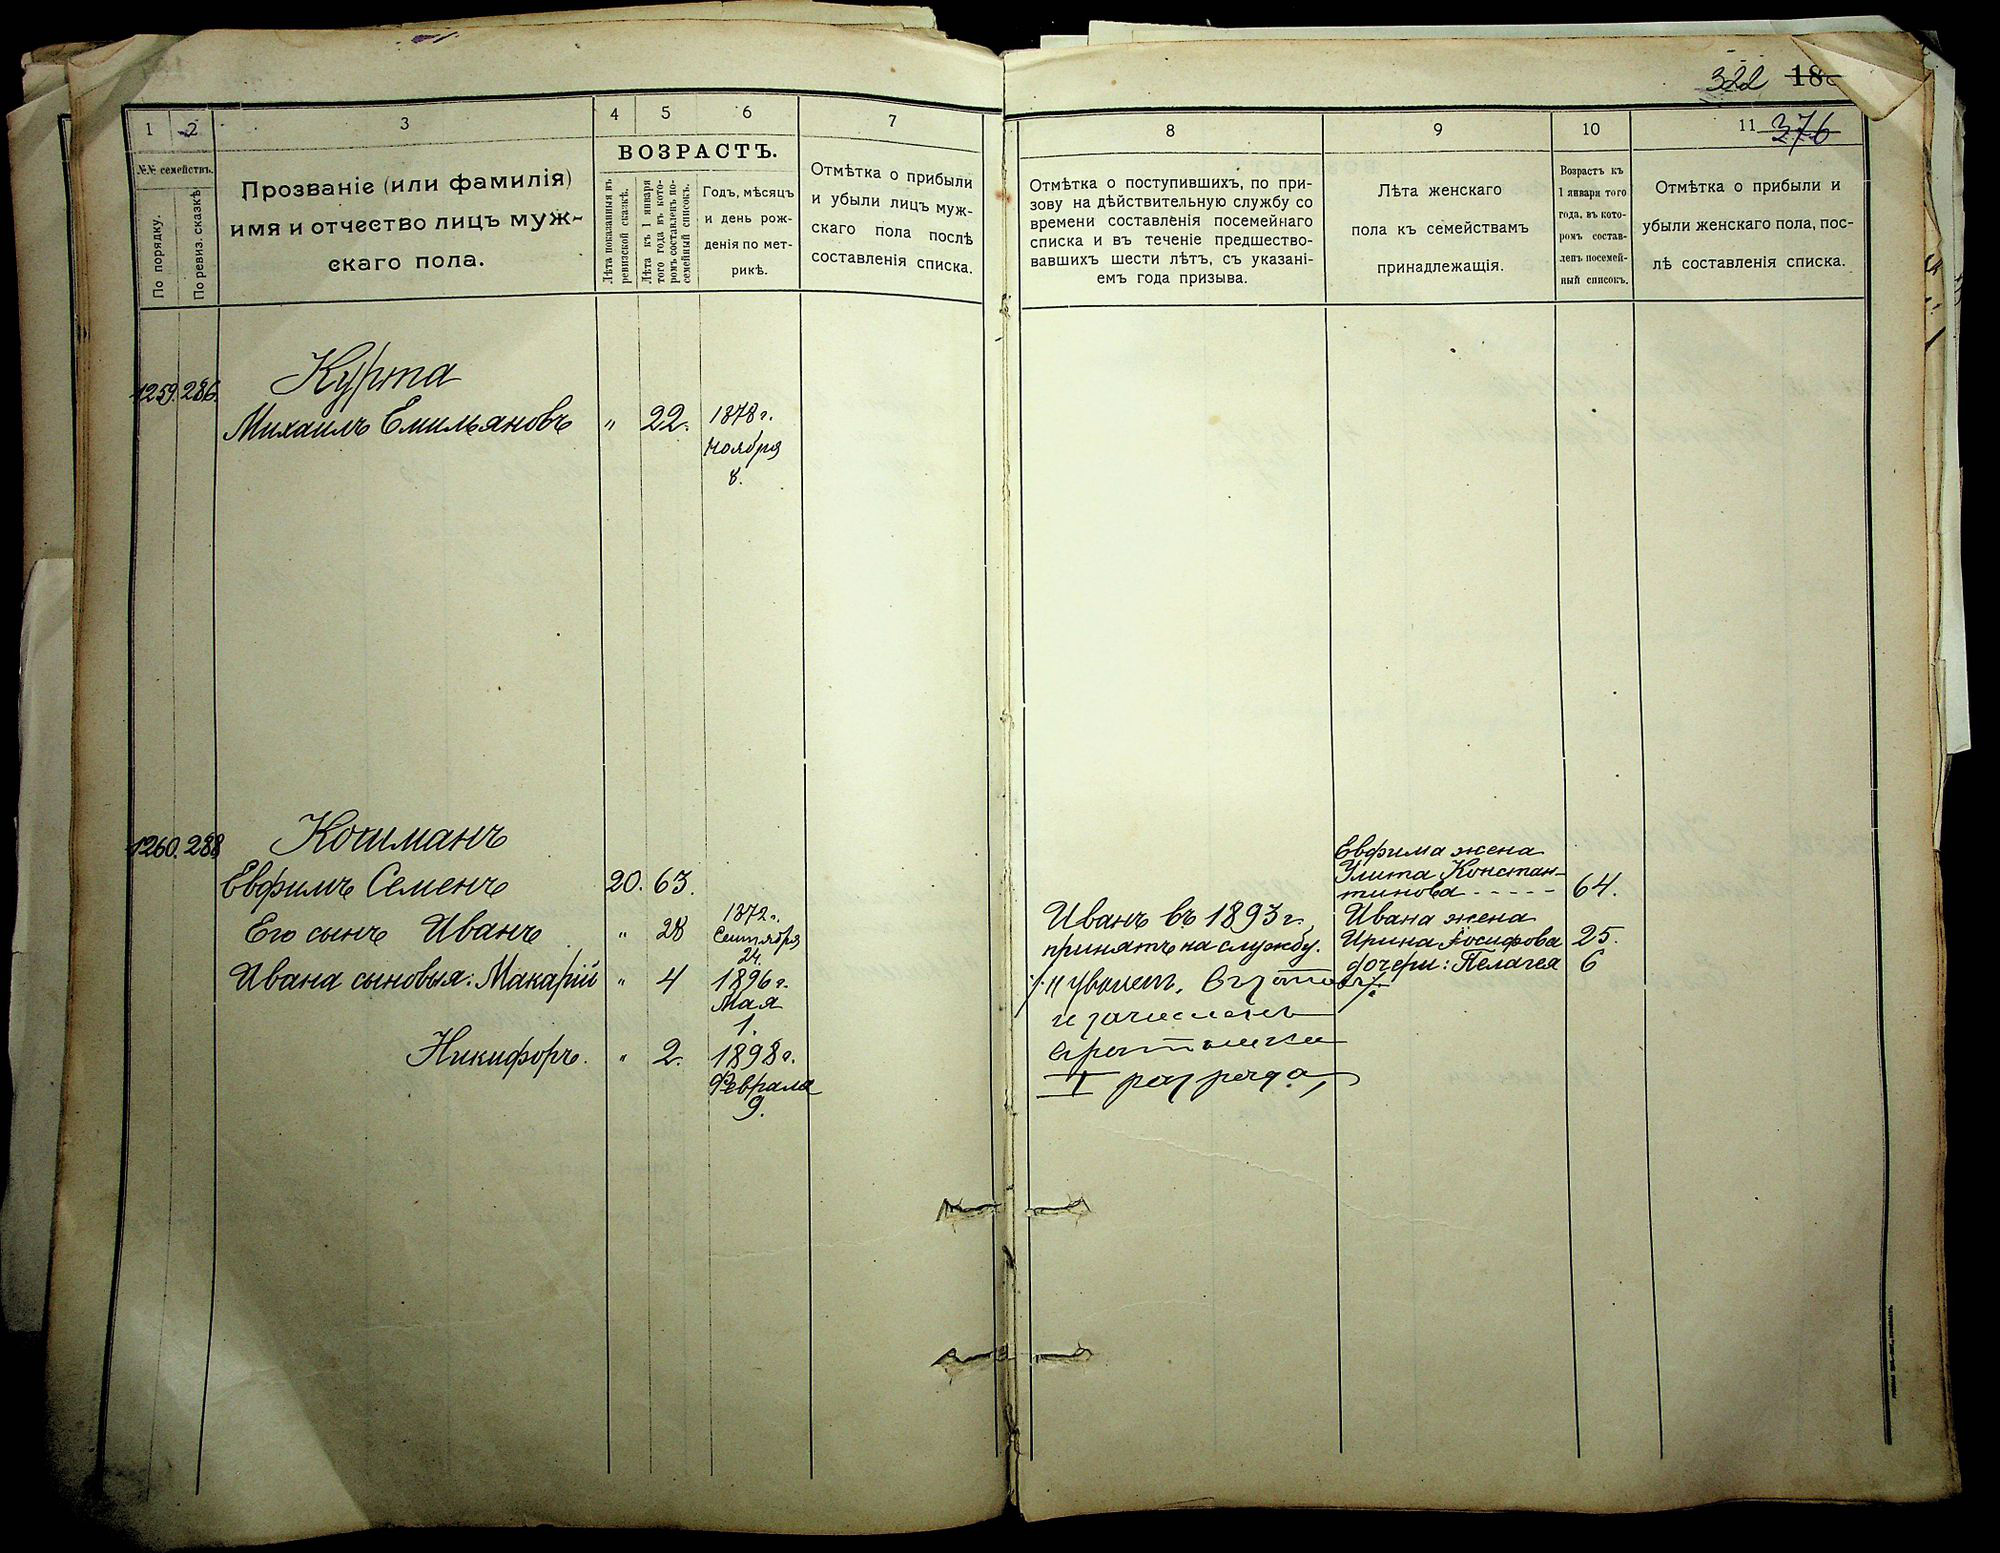 322 188
376
1 2 3 4 5 6 7
№№ семействъ.
По порядку.
По ревиз. сказкѣ
Прозваніе (или фамилія)
имя и отчество лицъ муж-
скаго пола.
ВОЗРАСТЪ.
Лѣта показанныя въ
ревизской сказкѣ.
Лѣта къ 1 января
того года въ кото-
ромъ составленъ по-
семейный списокъ.
Годъ, мѣсяцъ
и день рож-
денія по мет-
рикѣ.
Отмѣтка о прибыли
и убыли лицъ муж-
скаго пола послѣ
составленія списка.
1259. 286. Курта
Михаилъ Емильяновъ " 22. 1878 г.
Ноября
8.
1260. 288 Кошманъ
Евфимъ Семенъ 20. 63.
Его сынъ Иванъ " 28 1872 г.
Сентября
24.
Ивана сыновья: Макарій " 4 1896 г.
Мая
1.
Никифоръ. " 2. 1898 г.
Февраля
9.
8 9 10 11
Отмѣтка о поступившихъ, по при-
зову на дѣйствительную службу со
времени составленія посемейнаго
списка и въ теченіе предшество-
вавшихъ шести лѣтъ, съ указані-
емъ года призыва.
Лѣта женскаго
пола къ семействамъ
принадлежащія.
Возрастъ къ
1 января того
года, въ кото-
ромъ состав-
ленъ посемей-
ный списокъ.
Отмѣтка о прибыли и
убыли женскаго пола, пос-
лѣ составленія списка.
Иванъ въ 1893 г.
принятъ на службу.
и уволен.
и зачисленъ
I разряда
Евфима жена
Улита Констан-
тинова - - - - - 64.
Ивана жена
Ирина Іосифова 25.
дочери: Пелагея 6